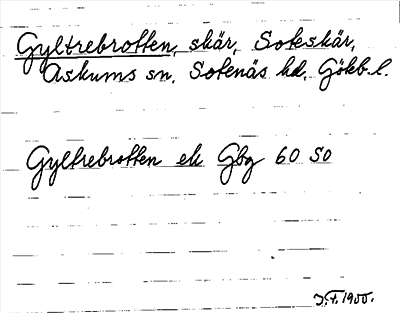 Gyltrebrotten, skär, Soteskär,
Askums sn, Sotenäs hd, Götb. l.
Gyltrebrotten ek Gbg 60 So
J.F. 1900.